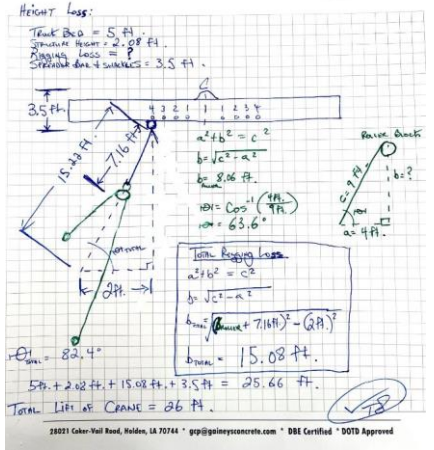 HEIGHT LOSS:
TRUCK BED = 5 ft.
STRUCTURE HEIGHT = 2.08 ft.
RIGGING LOSS = ?
SPREADER BAR & SHACKLES = 3.5 ft.
3.5 ft.
4 3 2 1 1 2 3 4
15.22 ft.
7.16 ft.
a² + b² = c²
b = √c² - a²
b = 8.06 ft.
Cos⁻¹ (4ft. / 9ft.)
63.6°
c = 9 ft.
b = ?
a = 4 ft.
2 ft.
= 82.4°
TOTAL Rigging Loss
a² + b² = c²
b = √c² - a²
+ 7.16 ft)² - (2 ft.)²
b TOTAL = 15.08 ft.
5 ft. + 2.08 ft. + 15.08 ft. + 3.5 ft = 25.66 ft.
TOTAL LIFT OF CRANE = 26 ft.
28021 Coker-Vail Road, Holden, LA 70744 * gcp@gaineysconcrete.com * DBE Certified * DOTD Approved